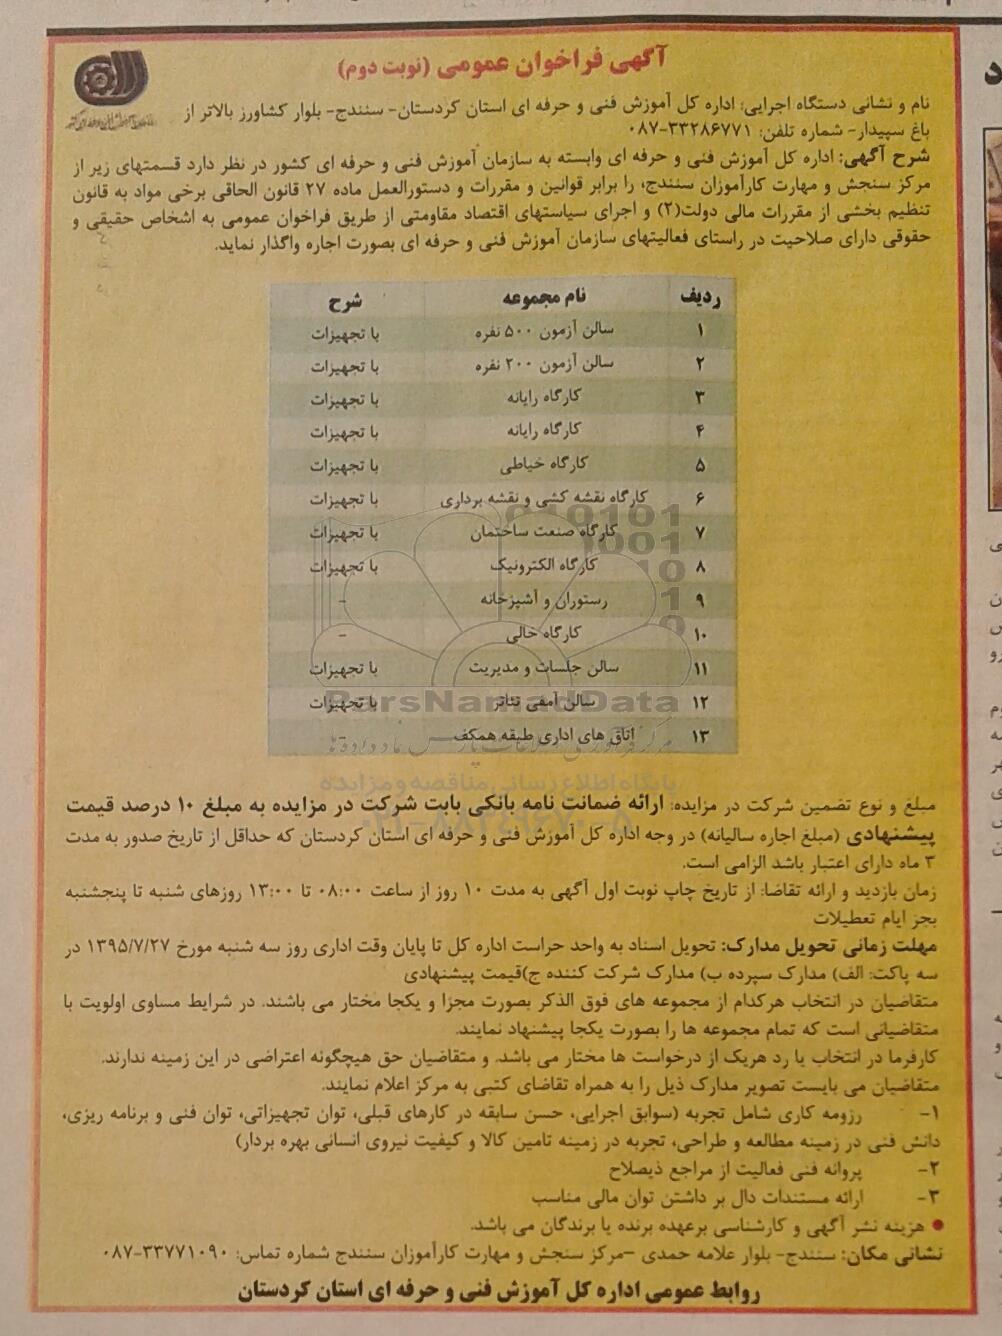 آگهی فراخوان عمومی (نوبت دوم)
نام و نشانی دستگاه اجرایی: اداره کل آموزش فنی و حرفه ای استان کردستان- سنندج- بلوار کشاورز بالاتر از
باغ سپیدار- شماره تلفن: ۳۳۲۸۶۷۷۱-۰۸۷
شرح آگهی: اداره کل آموزش فنی و حرفه ای وابسته به سازمان آموزش فنی و حرفه ای کشور در نظر دارد قسمتهای زیر از
مرکز سنجش و مهارت کارآموزان سنندج، را برابر قوانین و مقررات و دستورالعمل ماده ۲۷ قانون الحاقی برخی مواد به قانون
تنظیم بخشی از مقررات مالی دولت(۲) و اجرای سیاستهای اقتصاد مقاومتی از طریق فراخوان عمومی به اشخاص حقیقی و
حقوقی دارای صلاحیت در راستای فعالیتهای سازمان آموزش فنی و حرفه ای بصورت اجاره واگذار نماید.
ردیف نام مجموعه شرح
۱ سالن آزمون ۵۰۰ نفره با تجهیزات
۲ سالن آزمون ۲۰۰ نفره با تجهیزات
۳ کارگاه رایانه با تجهیزات
۴ کارگاه رایانه با تجهیزات
۵ کارگاه خیاطی با تجهیزات
۶ کارگاه نقشه کشی و نقشه برداری با تجهیزات
۷ کارگاه صنعت ساختمان با تجهیزات
۸ کارگاه الکترونیک با تجهیزات
۹ رستوران و آشپزخانه -
۱۰ کارگاه خالی -
۱۱ سالن جلسات و مدیریت با تجهیزات
۱۲ سالن آمفی تئاتر با تجهیزات
۱۳ اتاق های اداری طبقه همکف -
ParsNamadData
پایگاه اطلاع رسانی مناقصه و مزایده
مبلغ و نوع تضمین شرکت در مزایده: ارائه ضمانت نامه بانکی بابت شرکت در مزایده به مبلغ ۱۰ درصد قیمت
پیشنهادی (مبلغ اجاره سالیانه) در وجه اداره کل آموزش فنی و حرفه ای استان کردستان که حداقل از تاریخ صدور به مدت
۳ ماه دارای اعتبار باشد الزامی است.
زمان بازدید و ارائه تقاضا: از تاریخ چاپ نوبت اول آگهی به مدت ۱۰ روز از ساعت ۰۸:۰۰ تا ۱۳:۰۰ روزهای شنبه تا پنجشنبه
بجز ایام تعطیلات
مهلت زمانی تحویل مدارک: تحویل اسناد به واحد حراست اداره کل تا پایان وقت اداری روز سه شنبه مورخ ۱۳۹۵/۷/۲۷ در
سه پاکت: الف) مدارک سپرده ب) مدارک شرکت کننده ج)قیمت پیشنهادی
متقاضیان در انتخاب هرکدام از مجموعه های فوق الذکر بصورت مجزا و یکجا مختار می باشند. در شرایط مساوی اولویت با
متقاضیانی است که تمام مجموعه ها را بصورت یکجا پیشنهاد نمایند.
کارفرما در انتخاب یا رد هریک از درخواست ها مختار می باشد. و متقاضیان حق هیچگونه اعتراضی در این زمینه ندارند.
متقاضیان می بایست تصویر مدارک ذیل را به همراه تقاضای کتبی به مرکز اعلام نمایند.
۱- رزومه کاری شامل تجربه (سوابق اجرایی، حسن سابقه در کارهای قبلی، توان تجهیزاتی، توان فنی و برنامه ریزی،
دانش فنی در زمینه مطالعه و طراحی، تجربه در زمینه تامین کالا و کیفیت نیروی انسانی بهره بردار)
۲- پروانه فنی فعالیت از مراجع ذیصلاح
۳- ارائه مستندات دال بر داشتن توان مالی مناسب
● هزینه نشر آگهی و کارشناسی برعهده برنده یا برندگان می باشد.
نشانی مکان: سنندج- بلوار علامه حمدی -مرکز سنجش و مهارت کارآموزان سنندج شماره تماس: ۳۳۷۷۱۰۹۰-۰۸۷
روابط عمومی اداره کل آموزش فنی و حرفه ای استان کردستان